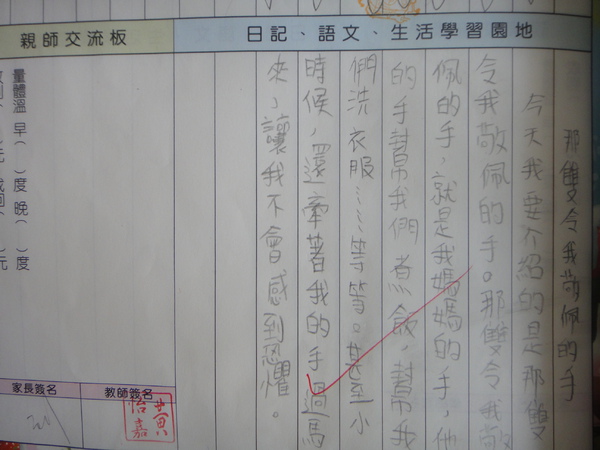 日記、語文、生活學習園地
那雙令我敬佩的手
今天我要介紹的是那雙
令我敬佩的手。那雙令我敬
佩的手，就是我媽媽的手，他
的手幫我們煮飯，幫我
們洗衣服……等等。甚至小
時候，還牽著我的手過馬
來，讓我不會感到恐懼。
親師交流板
量體溫 早( )度 晚( )度
家長簽名
教師簽名
黃怡嘉